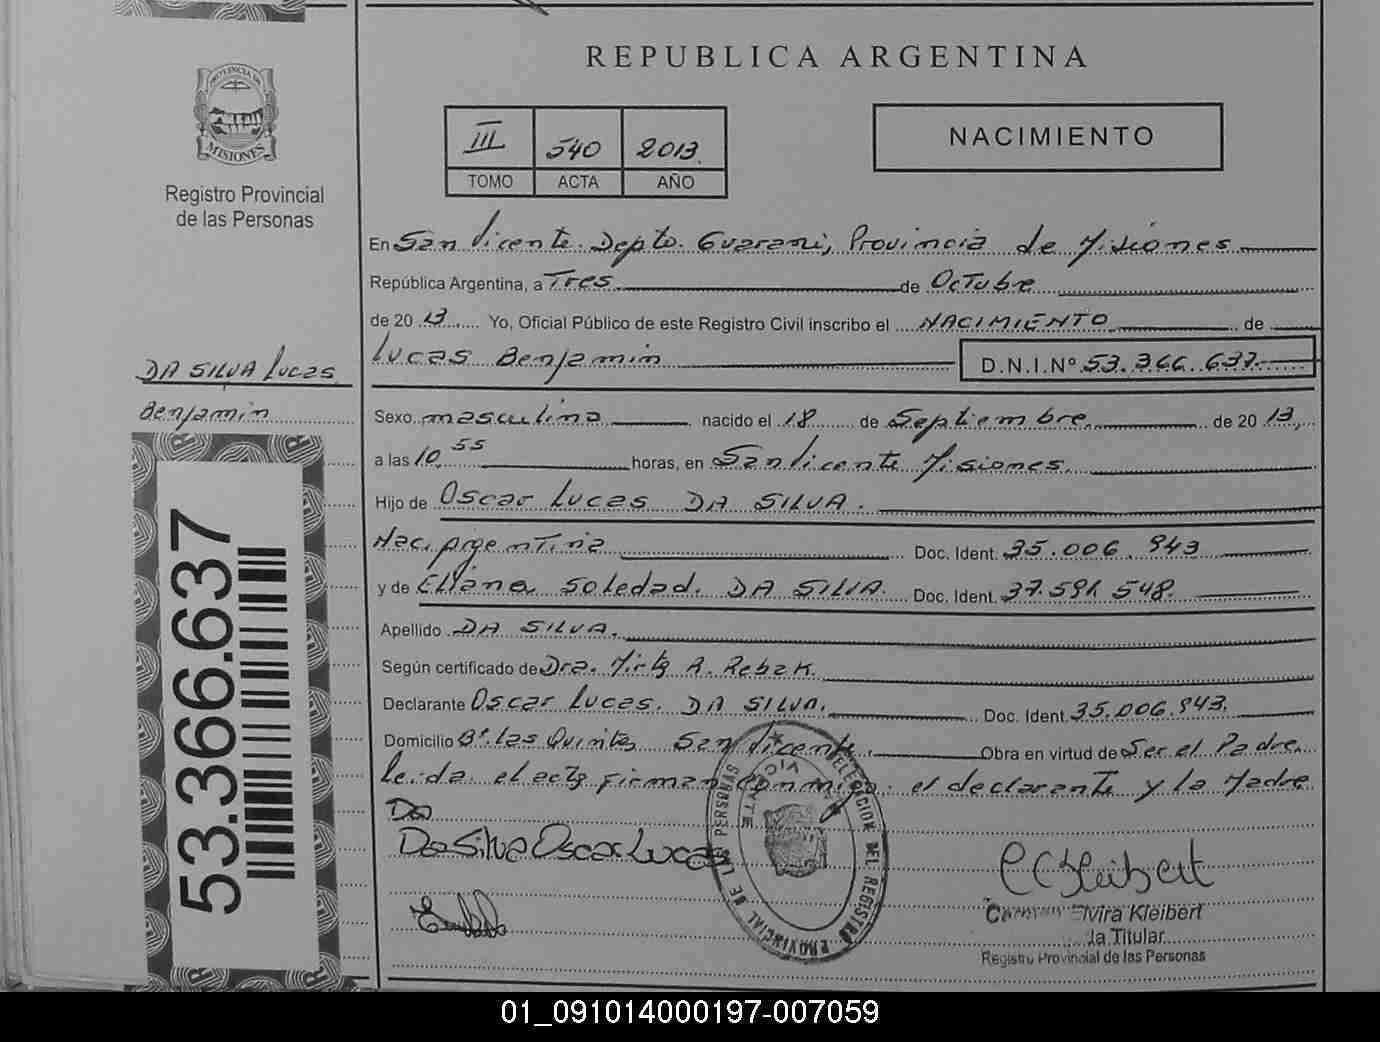 REPUBLICA ARGENTINA
PROVINCIA DE
MISIONES
Registro Provincial
de las Personas
III 540 2013
TOMO ACTA AÑO
NACIMIENTO
En San Vicente. Depto. Guarani, Provincia de Misiones
República Argentina, a Tres. de Octubre
de 2013 Yo, Oficial Público de este Registro Civil inscribo el NACIMIENTO de
Lucas Benjamin D.N.I.Nº 53.366.637
DA SILVA Lucas
Benjamin
Sexo masculino nacido el 18 de Septiembre de 2013,
a las 10,55 horas, en San Vicente Misiones.
Hijo de Oscar Lucas DA SILVA.
Nac. Argentina Doc. Ident. 35.006.943
y de Eliana Soledad. DA SILVA. Doc. Ident. 37.591.548.
Apellido DA SILVA.
Según certificado de Dra. Mirta A. Rebak.
Declarante Oscar Lucas. DA SILVA. Doc. Ident. 35.006.943.
Domicilio Bº. Las Quintas San Vicente. Obra en virtud de Ser el Padre.
Leida el acta firman conmigo. el declarante y la Madre
Da
Da Silva Oscar Lucas
53.366.637
DELEGACION DEL REGISTRO PROVINCIAL DE LAS PERSONAS
SAN VICENTE
Elvira Kleibert
Titular
Registro Provincial de las Personas
01_091014000197-007059